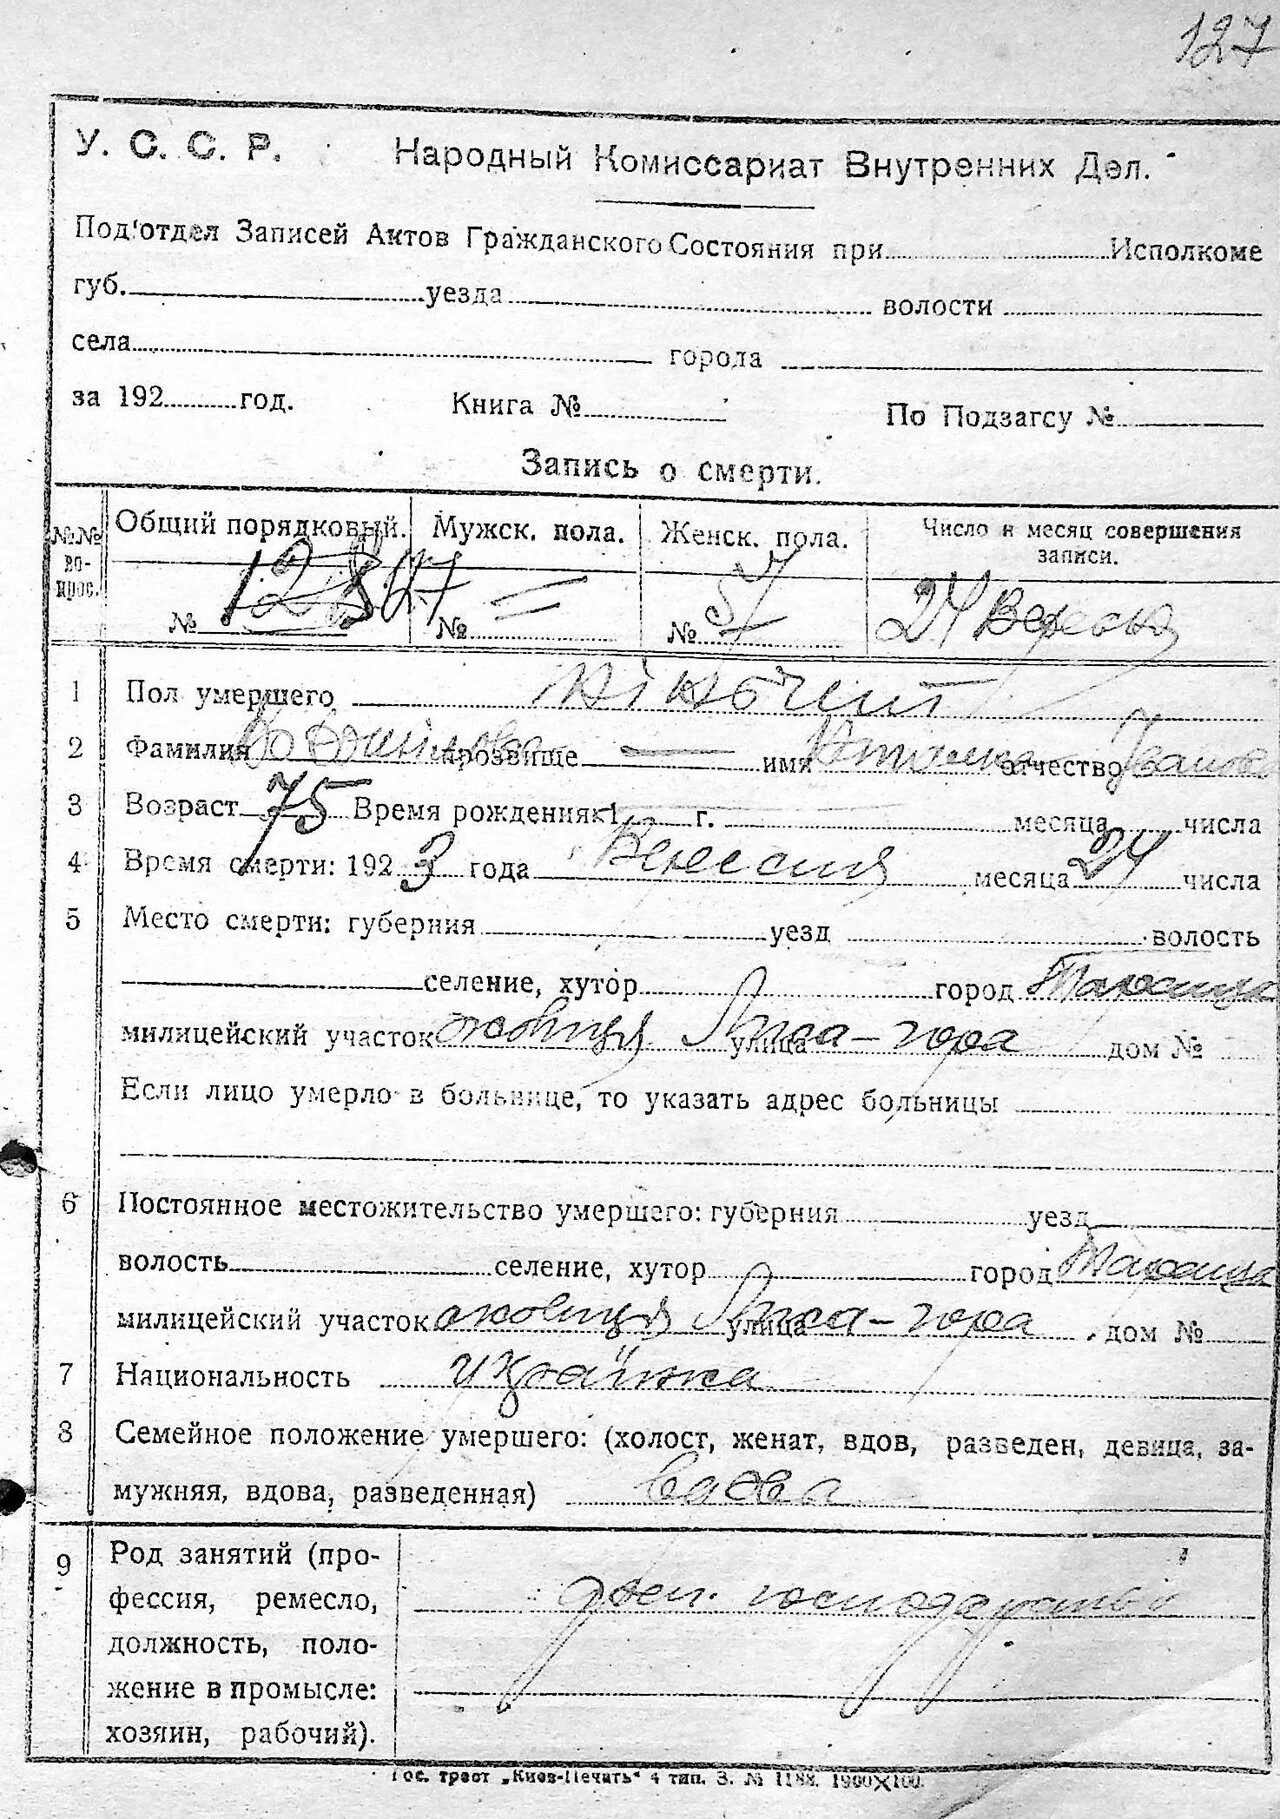 127
У. С. С. Р. Народный Комиссариат Внутренних Дел.
Под'отдел Записей Актов Гражданского Состояния при Исполкоме
губ. уезда волости
села города
за 192 год. Книга № По Подзагсу №
Запись о смерти.
№№ во-прос. Общий порядковый. Мужск. пола. Женск. пола. Число и месяц совершения записи.
№ 127 № = № 57 24 Вересня
1 Пол умершего жіночий
2 Фамилия прозвище — имя отчество Іванова
3 Возраст 75 Время рождения 1 г. месяца числа
4 Время смерти: 1923 года Вересня месяца 24 числа
5 Место смерти: губерния уезд волость
селение, хутор город Тараща
милицейский участок околиця улица Лиса-гора дом №
Если лицо умерло в больнице, то указать адрес больницы
6 Постоянное местожительство умершего: губерния уезд
волость селение, хутор город Тараща
милицейский участок околиця улица Лиса-гора дом №
7 Национальность українка
8 Семейное положение умершего: (холост, женат, вдов, разведен, девица, за-
мужняя, вдова, разведенная) вдова
9 Род занятий (про-
фессия, ремесло,
должность, поло-
жение в промысле:
хозяин, рабочий).
Гос. трест „Киев-Печать" 4 тип. З. № 1188. 1900×100.